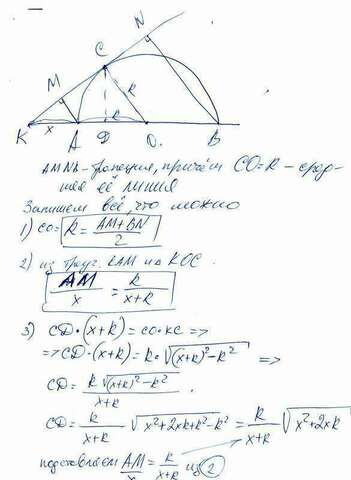 N
C
M
R
K x A D R O. B
AMNB - трапеция, причём CO=R - сред-
няя её линия
Запишем всё, что можно
1) CO = R = AM+BN / 2
2) из треуг. KAM и KOC
AM / x = R / x+R
3) CD·(x+R) = CO·KC =>
=> CD·(x+R) = R·√(x+R)²-R² =>
CD = R√(x+R)²-R² / x+R .
CD = R / x+R √x²+2xR+R²-R² = R / x+R √x²+2xR
подставляем AM / x = R / x+R из 2